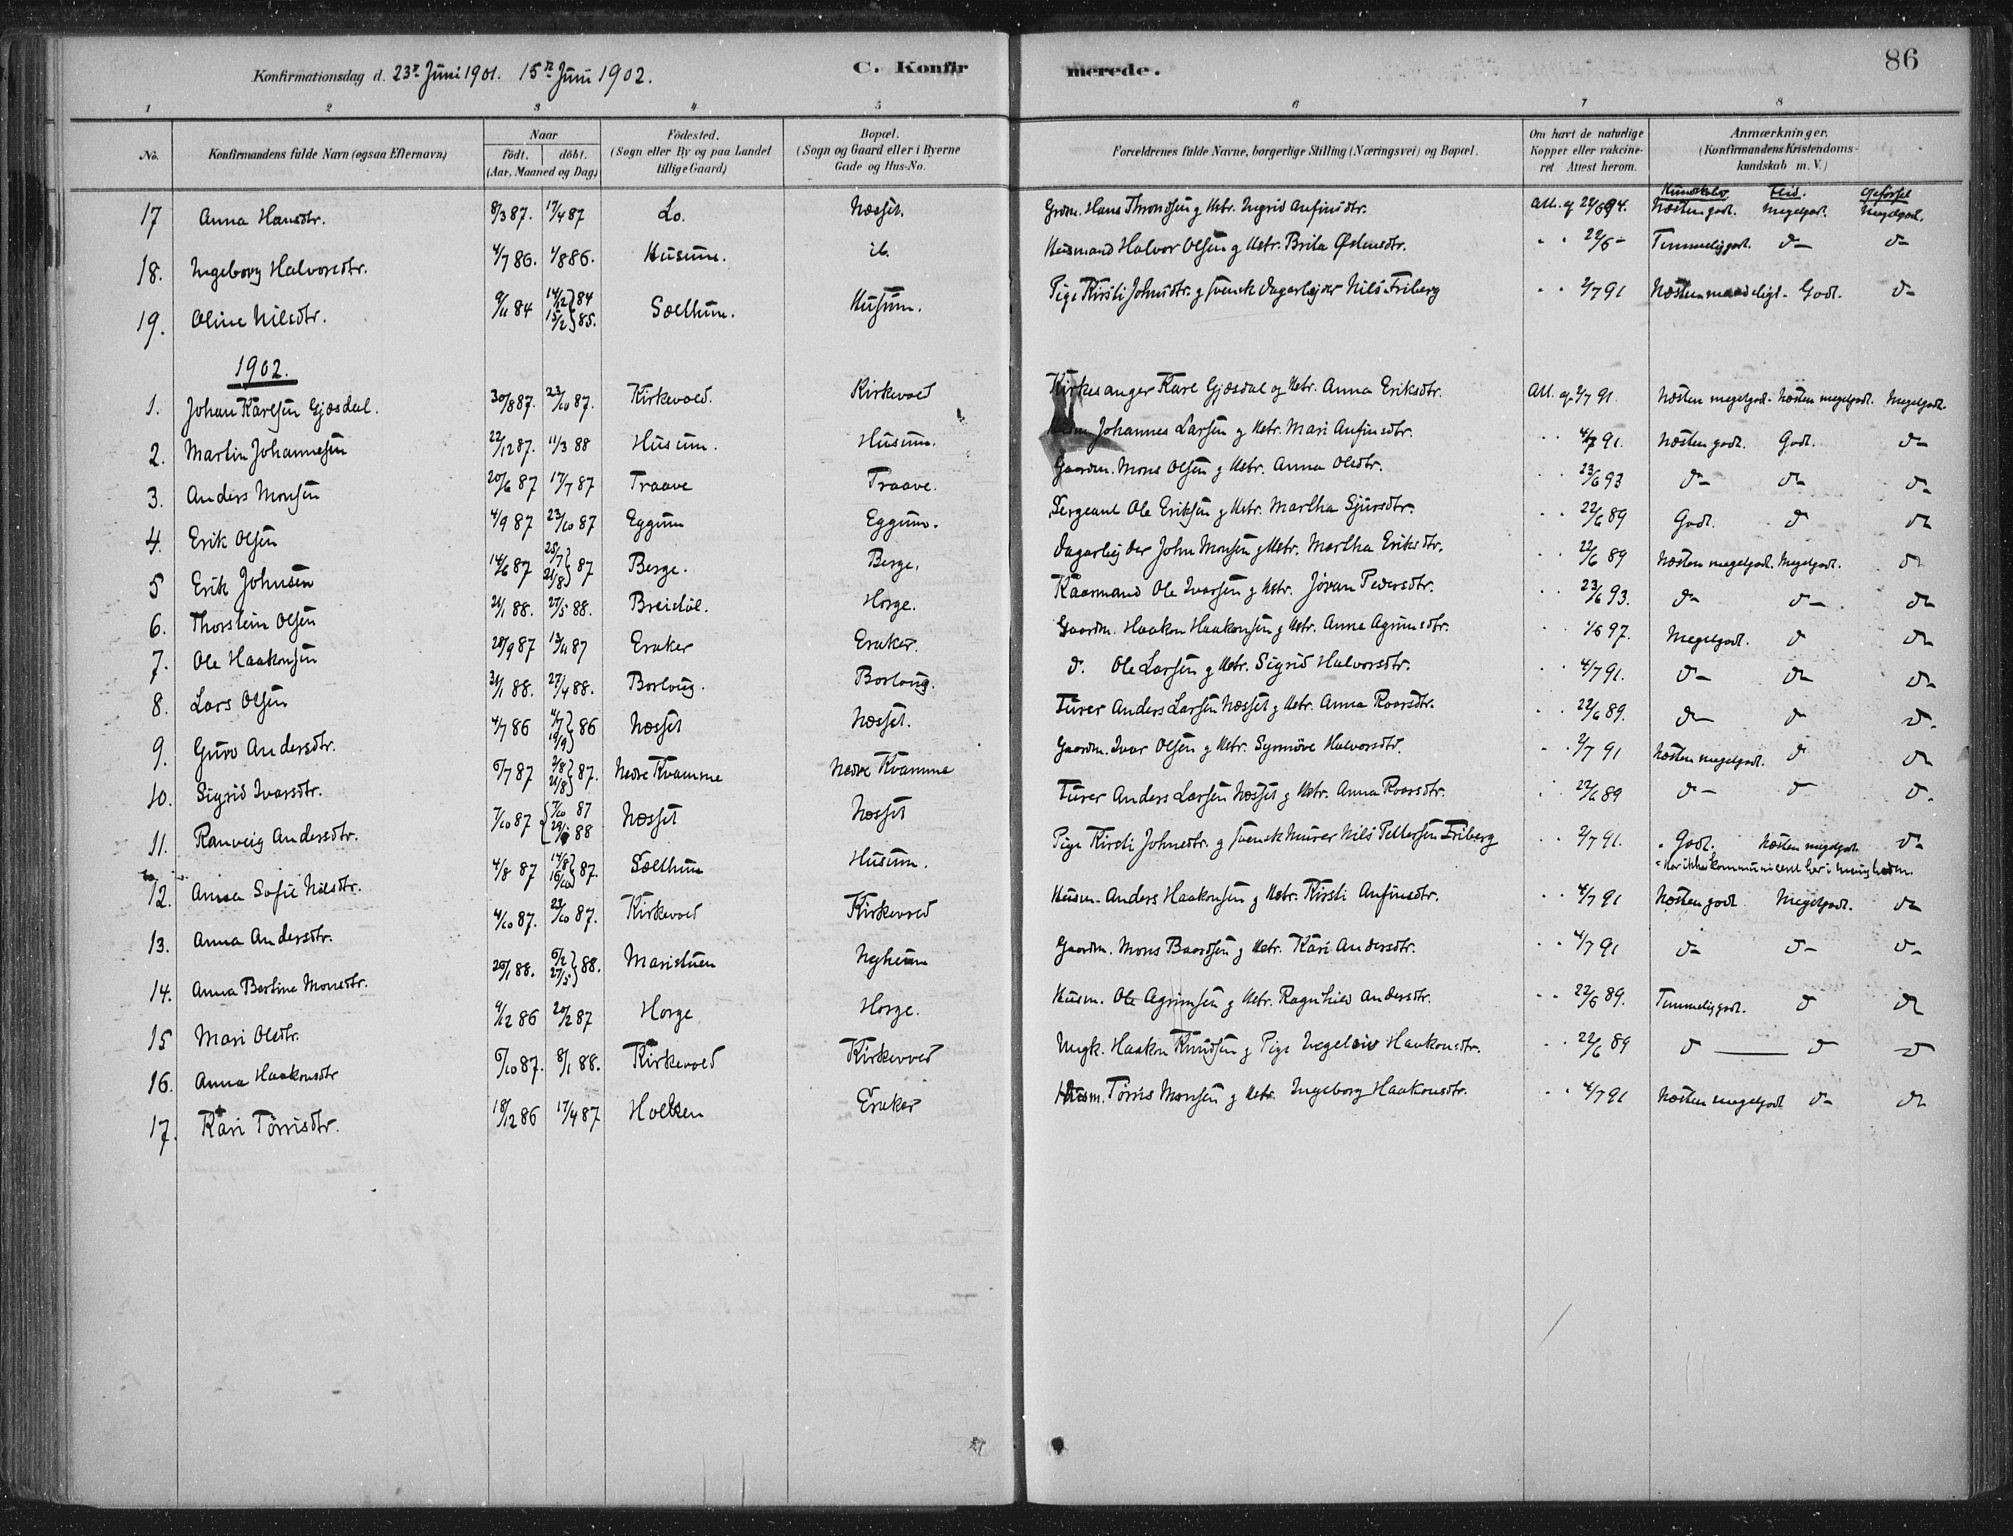 86
Konfirmationsdag d. 23de Juni 1901. 15de Juni 1902. C. Konfirmerede.
1 2 3 4 5 6 7 8
No. Konfirmandens fulde Navn (ogsaa Efternavn) Naar födt. döbt. (Aar, Maaned og Dag) Födested. (Sogn eller By og paa Landet tillige Gaard) Bopæl. (Sogn og Gaard eller i Byerne Gade og Hus-No. Forældrenes fulde Navne, borgerlige Stilling (Næringsvei) og Bopæl. Om havt de naturlige Kopper eller vakcineret Attest herom. Anmærkninger. (Konfirmandens Kristendomskundskab m. V.)
Kundskab. Flid. Opførsel
17 Anna Hansdtr. 8/3 87. 17/4 87 Lo. Næsset. Grdm. Hans Throndsen g Hstr. Ingrid Anfinsdtr. Att. af 22/6 94. Næsten godt. Megetgod. Megetgod.
18. Ingeborg Halvorsdtr. 4/7 86. 1/8 86. Husum. ib. Husmand Halvor Olsen g Hstr. Brita Østensdtr. " " 22/6 – Temmeliggodt. d– d–
19. Oline Nilsdtr. 9/11 84 14/12 84 15/2 85. Sælthun. Husum. Pige Kirsti Johnsdtr. g svensk Dagarbejder Nils Friberg " " 2/7 91 Næsten maadeligt – Godt. d–
1902.
1. Johan Karlsen Gjæsdal. 30/8 87. 23/10 87. Kirkevold. Kirkevold Kirkesanger Karl Gjæsdal og Hstr. Anna Eriksdtr. Att. af 2/7 91. Næsten megetgodt. Næsten megetgodt. Megetgodt.
2. Martin Johannesen 22/12 87. 11/3 88 Husum. Husum. Johannes Larsen g Hstr. Mari Anfinsdtr. " " 4/7 91. Næsten godt. Godt. d–
3. Anders Monsen 20/6 87 17/7 87 Traave Traave. Gaardm. Mons Olsen g Hstr. Anna Olsdtr. " " 23/6 93 d– d– d–
4. Erik Olsen 4/9 87 23/10 87 Eggum Eggum. Sergeant Ole Eriksen g Hstr. Martha Sjursdtr. " " 22/6 89 Godt. d d–
5 Erik Johnsen 14/6 87 25/7 21/8 87 Berge. Berge. Dagarbejder John Monsen g Hstr. Martha Eriksdtr. " " 22/6 89 Næsten megetgodt. Megetgodt. d–
6. Thorstein Olsen 21/1 88. 27/5 88. Breidøl. Horge. Kaarmand Ole Ivarsen g Hstr. Jøran Pedersdtr. " " 23/6 93. d– d– d–
7. Ole Haakonsen 28/9 87 13/11 87 Eraker Eraker. Gaardm. Haakon Haakonsen g Hstr. Anna Agrimsdtr. " " 1/6 97. Megetgodt. d d–
8. Lars Olsen 31/1 88. 27/4 88. Borloug. Borloug. d. Ole Larsen g Hstr. Sigrid Halvorsdtr. " " 4/7 91. d– d– d–
9. Guro Andersdtr. 4/7 86 4/7 19/9 86 Næsset Næsset. Furer Anders Larsen Næsset g Hstr. Anna Roarsdtr. " " 22/6 89. d– d d–
10. Sigrid Ivarsdtr. 6/7 87 2/8 21/8 87. Nedre Kvamme Nedre Kvamme Gaardm. Ivar Olsen g Hstr. Synnöve Halvorsdtr. " " 2/7 91 Næsten megetgodt. d d–
11. Ranveig Andersdtr. 7/10 87 7/10 87 29/1 88 Næsset Næsset Furer Anders Larsen Næsset g Hstr. Anna Roarsdtr. " " 22/6 89 d– d d.
12. Anna Sofie Nilsdtr. 4/8 87 14/8 16/10 87. Sælthun Husum. Pige Kirsti Johnsdtr. g svensk Murer Nils Pettersen Friberg " " 2/7 91. Godt. Næsten megetgodt. d–
Har ikke kommuniceret her i menigheden.
13. Anna Andersdtr. 4/10 87. 23/10 87. Kirkevold Kirkevold Husm. Anders Haakonsen g Hstr. Kirsti Anfinsdtr. " " 4/7 91 Næsten godt Megetgodt. d–
14. Anna Bertine Monsdtr. 26/1 88. 5/2 27/5 88. Maristuen Nyheim Gaardm. Mons Baardsen g Hstr. Kari Andersdtr. " " 4/7 91 d– d– d–
15 Mari Olsdtr. 9/12 86 20/2 87 Horge Horge. Husm. Ole Agrimsen g Hstr. Ragnhild Andersdtr. " " 22/6 89. Temmeliggodt. d d–
16. Anna Haakonsdtr 6/10 87. 8/1 88. Kirkevold Kirkevold Ungk. Haakon Knudsen g Pige Ingeleiv Haakonsdtr. " " 22/6 89 d — d d
17. Kari Tørrisdtr. 18/12 86 17/4 87 Eraker Husm. Tørris Monsen g Hstr. Ingeborg Haakonsdtr. " " 4/7 91 Næsten megetgodt d– d–